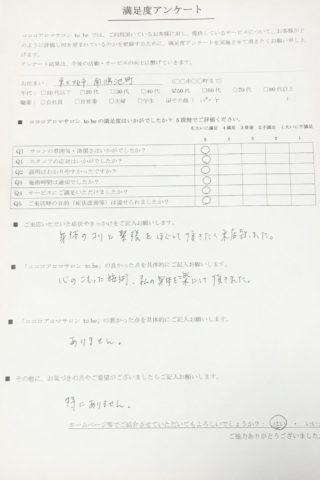 満足度アンケート
ココロアロマサロン to be では、ご利用頂いているお客様に対し、提供しているサービスについて、お客様がど
のように評価し何を望まれているのかを把握するために、満足度アンケートを実施させて頂きたくお願い申し上
げます。
アンケート結果は、今後の活動・サービスの向上に繋げていきます。
お住まい:
年代:□10代以下 □20代 □30代 □40代 50代 □60代 □70代 □80代以上
職業:□会社員 □自営業 □主婦 □学生 その他( パート )
■ ココロアロマサロン to be の満足度はいかがでしたか? 5段階でご評価ください。
5.大いに満足 4.満足 3.普通 2.不満足 1.大いに不満足
5 4 3 2 1
Q1 サロンの雰囲気・清潔さはいかがでしたか?
Q1 スタッフの応対はいかがでしたか?
Q2 説明はわかりやすかったですか?
Q3 施術時間は適切でしたか?
Q4 サービスにご満足いただけましたか?
Q5 ご来店時の目的(症状改善等)は達せられましたか?
■ ご来店いただいた症状やきっかけをご記入お願いします。
身体のコリと緊張をほぐして頂きたく来店致しました。
■ 「ココロアロマサロン to be」の良かった点を具体的にご記入お願いします。
心のこもった施術、私の身体を楽にして頂きました。
■ 「ココロアロマサロン to be」の悪かった点を具体的にご記入お願いします。
ありません。
■ その他に、お気づきの点やご要望がございましたらご記入お願いします。
特にありません。
ホームページ等でご紹介させていただいてもよろしいでしょうか?: はい ・ いい
ご協力ありがとうございました。